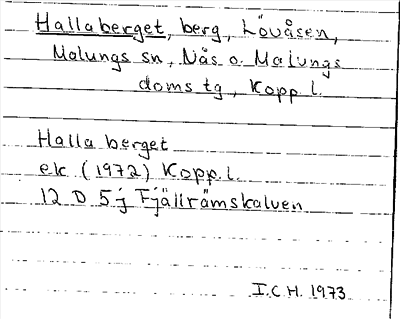 Hallaberget, berg, Lövåsen,
Malungs sn, Nås o. Malungs
doms tg, Kopp. l.
Halla berget
ek (1972) Kopp. l.
12 D 5j Fjällrämskalven
I.C.H. 1973